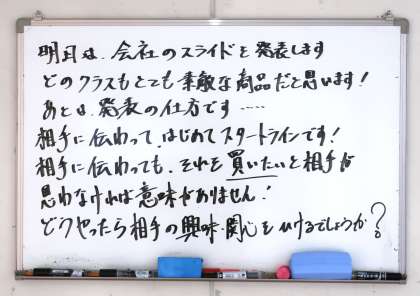 明日は、会社のスライドを発表します
どのクラスもとても素敵な商品だと思います！
あとは、発表の仕方です……
相手に伝わって、はじめてスタートラインです！
相手に伝わっても、それを買いたいと相手が
思わなければ意味がありません！
どうやったら相手の興味・関心をひけるでしょうか？